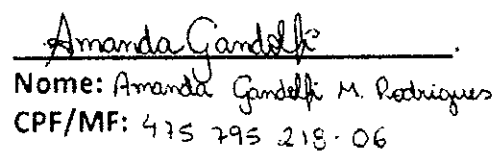 Amanda Gandolfi
Nome: Amanda Gandolfi M. Rodrigues
CPF/MF: 475 795 218-06